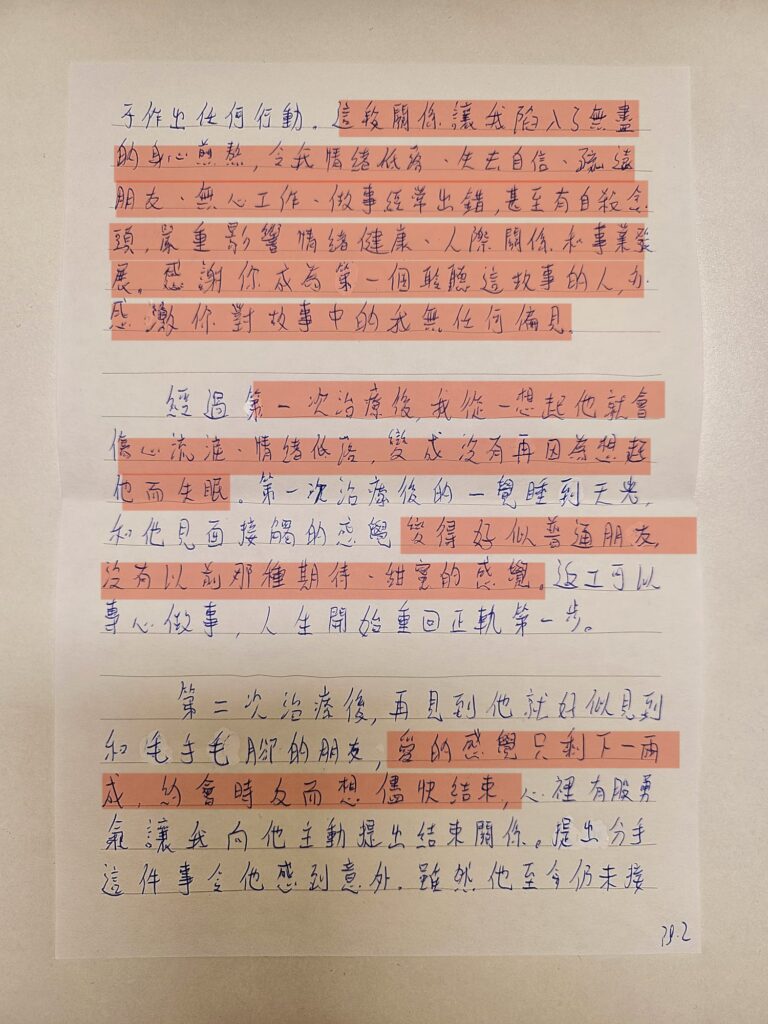 于作出任何行動。這段關係讓我陷入了無盡
的身心煎熬,令我情緒低落、失去自信、疏遠
朋友、無心工作、做事經常出錯,甚至有自殺念
頭,嚴重影響情緒健康、人際關係和事業發
展。感謝你成為第一個聆聽這故事的人,亦
感激你對故事中的我無任何偏見。
經過第一次治療後,我從一想起他就會
傷心流淚、情緒低落,變成沒有再因為想起
他而失眠。第一次治療後的一覺睡到天光,
和他見面接觸的感覺變得好似普通朋友,
沒有以前那種期待、甜蜜的感覺。返工可以
專心做事,人生開始重回正軌第一步。
第二次治療後,再見到他就好似見到
和毛手毛腳的朋友,愛的感覺只剩下一兩
成,約會時反而想儘快結束,心裡有股勇
氣讓我向他主動提出結束關係。提出分手
這件事令他感到意外。雖然他至今仍未接
P.2